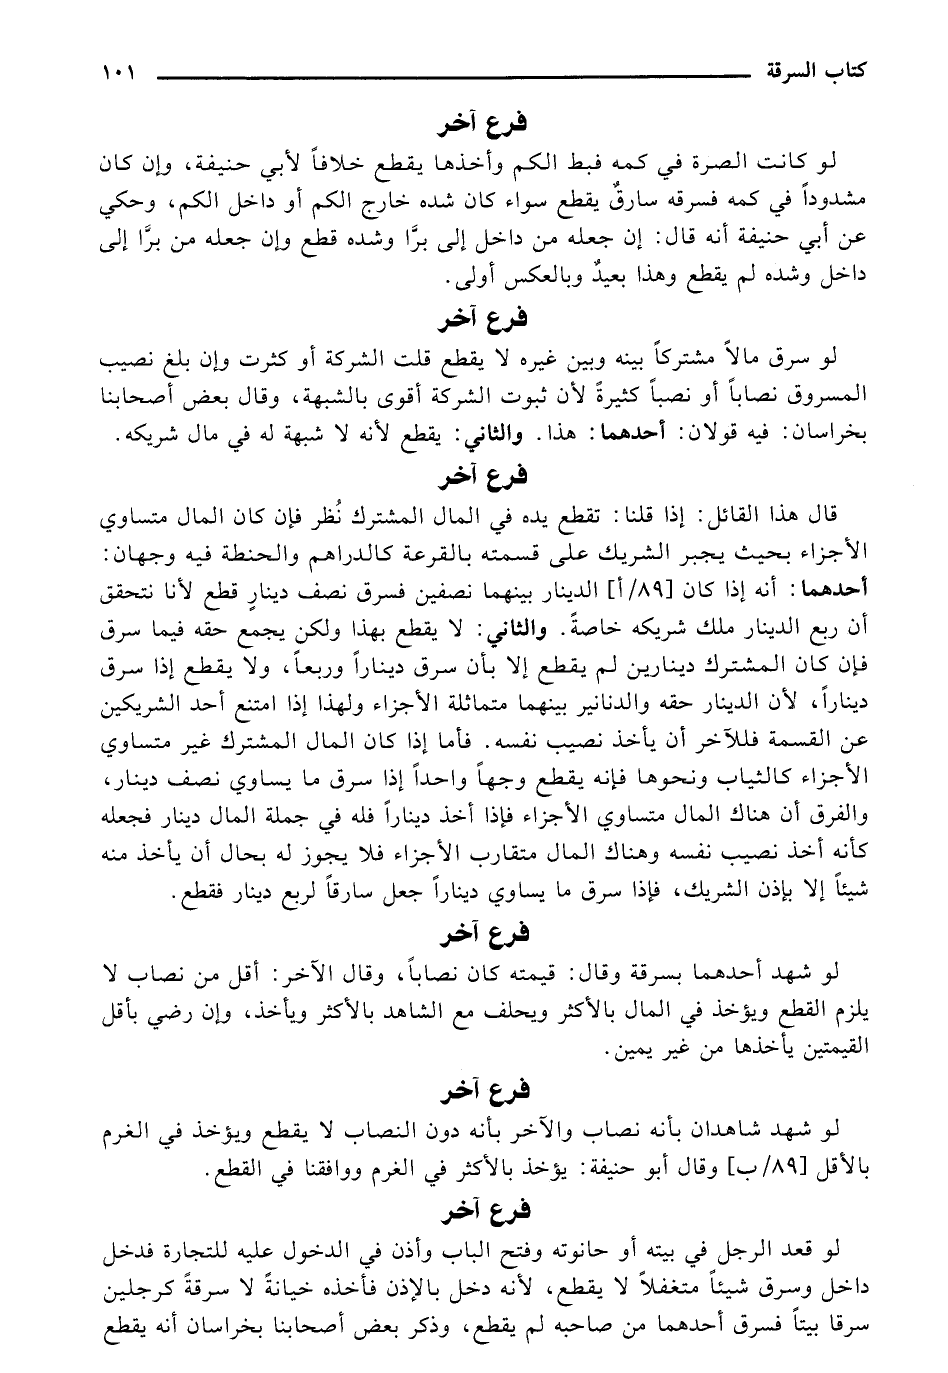 كتاب السرقة ١٠١
فرع آخر
لو كانت الصرة في كمه فبط الكم وأخذها يقطع خلافاً لأبي حنيفة، وإن كان
مشدوداً في كمه فسرقه سارقٌ يقطع سواء كان شده خارج الكم أو داخل الكم، وحكي
عن أبي حنيفة أنه قال: إن جعله من داخل إلى برَّا وشده قطع وإن جعله من برَّا إلى
داخل وشده لم يقطع وهذا بعيدٌ وبالعكس أولى.
فرع آخر
لو سرق مالاً مشتركاً بينه وبين غيره لا يقطع قلت الشركة أو كثرت وإن بلغ نصيب
المسروق نصاباً أو نصباً كثيرةً لأن ثبوت الشركة أقوى بالشبهة، وقال بعض أصحابنا
بخراسان: فيه قولان: أحدهما: هذا. والثاني: يقطع لأنه لا شبهة له في مال شريكه.
فرع آخر
قال هذا القائل: إذا قلنا: تقطع يده في المال المشترك نُظر فإن كان المال متساوي
الأجزاء بحيث يجبر الشريك على قسمته بالقرعة كالدراهم والحنطة فيه وجهان:
أحدهما: أنه إذا كان [٨٩/أ] الدينار بينهما نصفين فسرق نصف دينارٍ قطع لأنا نتحقق
أن ربع الدينار ملك شريكه خاصةً. والثاني: لا يقطع بهذا ولكن يجمع حقه فيما سرق
فإن كان المشترك دينارين لم يقطع إلا بأن سرق ديناراً وربعاً، ولا يقطع إذا سرق
ديناراً، لأن الدينار حقه والدنانير بينهما متماثلة الأجزاء ولهذا إذا امتنع أحد الشريكين
عن القسمة فللآخر أن يأخذ نصيب نفسه. فأما إذا كان المال المشترك غير متساوي
الأجزاء كالثياب ونحوها فإنه يقطع وجهاً واحداً إذا سرق ما يساوي نصف دينار،
والفرق أن هناك المال متساوي الأجزاء فإذا أخذ ديناراً فله في جملة المال دينار فجعله
كأنه أخذ نصيب نفسه وهناك المال متقارب الأجزاء فلا يجوز له بحال أن يأخذ منه
شيئاً إلا بإذن الشريك، فإذا سرق ما يساوي ديناراً جعل سارقاً لربع دينار فقطع.
فرع آخر
لو شهد أحدهما بسرقة وقال: قيمته كان نصاباً، وقال الآخر: أقل من نصاب لا
يلزم القطع ويؤخذ في المال بالأكثر ويحلف مع الشاهد بالأكثر ويأخذ، وإن رضي بأقل
القيمتين يأخذها من غير يمين.
فرع آخر
لو شهد شاهدان بأنه نصاب والآخر بأنه دون النصاب لا يقطع ويؤخذ في الغرم
بالأقل [٨٩/ب] وقال أبو حنيفة: يؤخذ بالأكثر في الغرم ووافقنا في القطع.
فرع آخر
لو قعد الرجل في بيته أو حانوته وفتح الباب وأذن في الدخول عليه للتجارة فدخل
داخل وسرق شيئاً متغفلاً لا يقطع، لأنه دخل بالإذن فأخذه خيانةً لا سرقةً كرجلين
سرقا بيتاً فسرق أحدهما من صاحبه لم يقطع، وذكر بعض أصحابنا بخراسان أنه يقطع